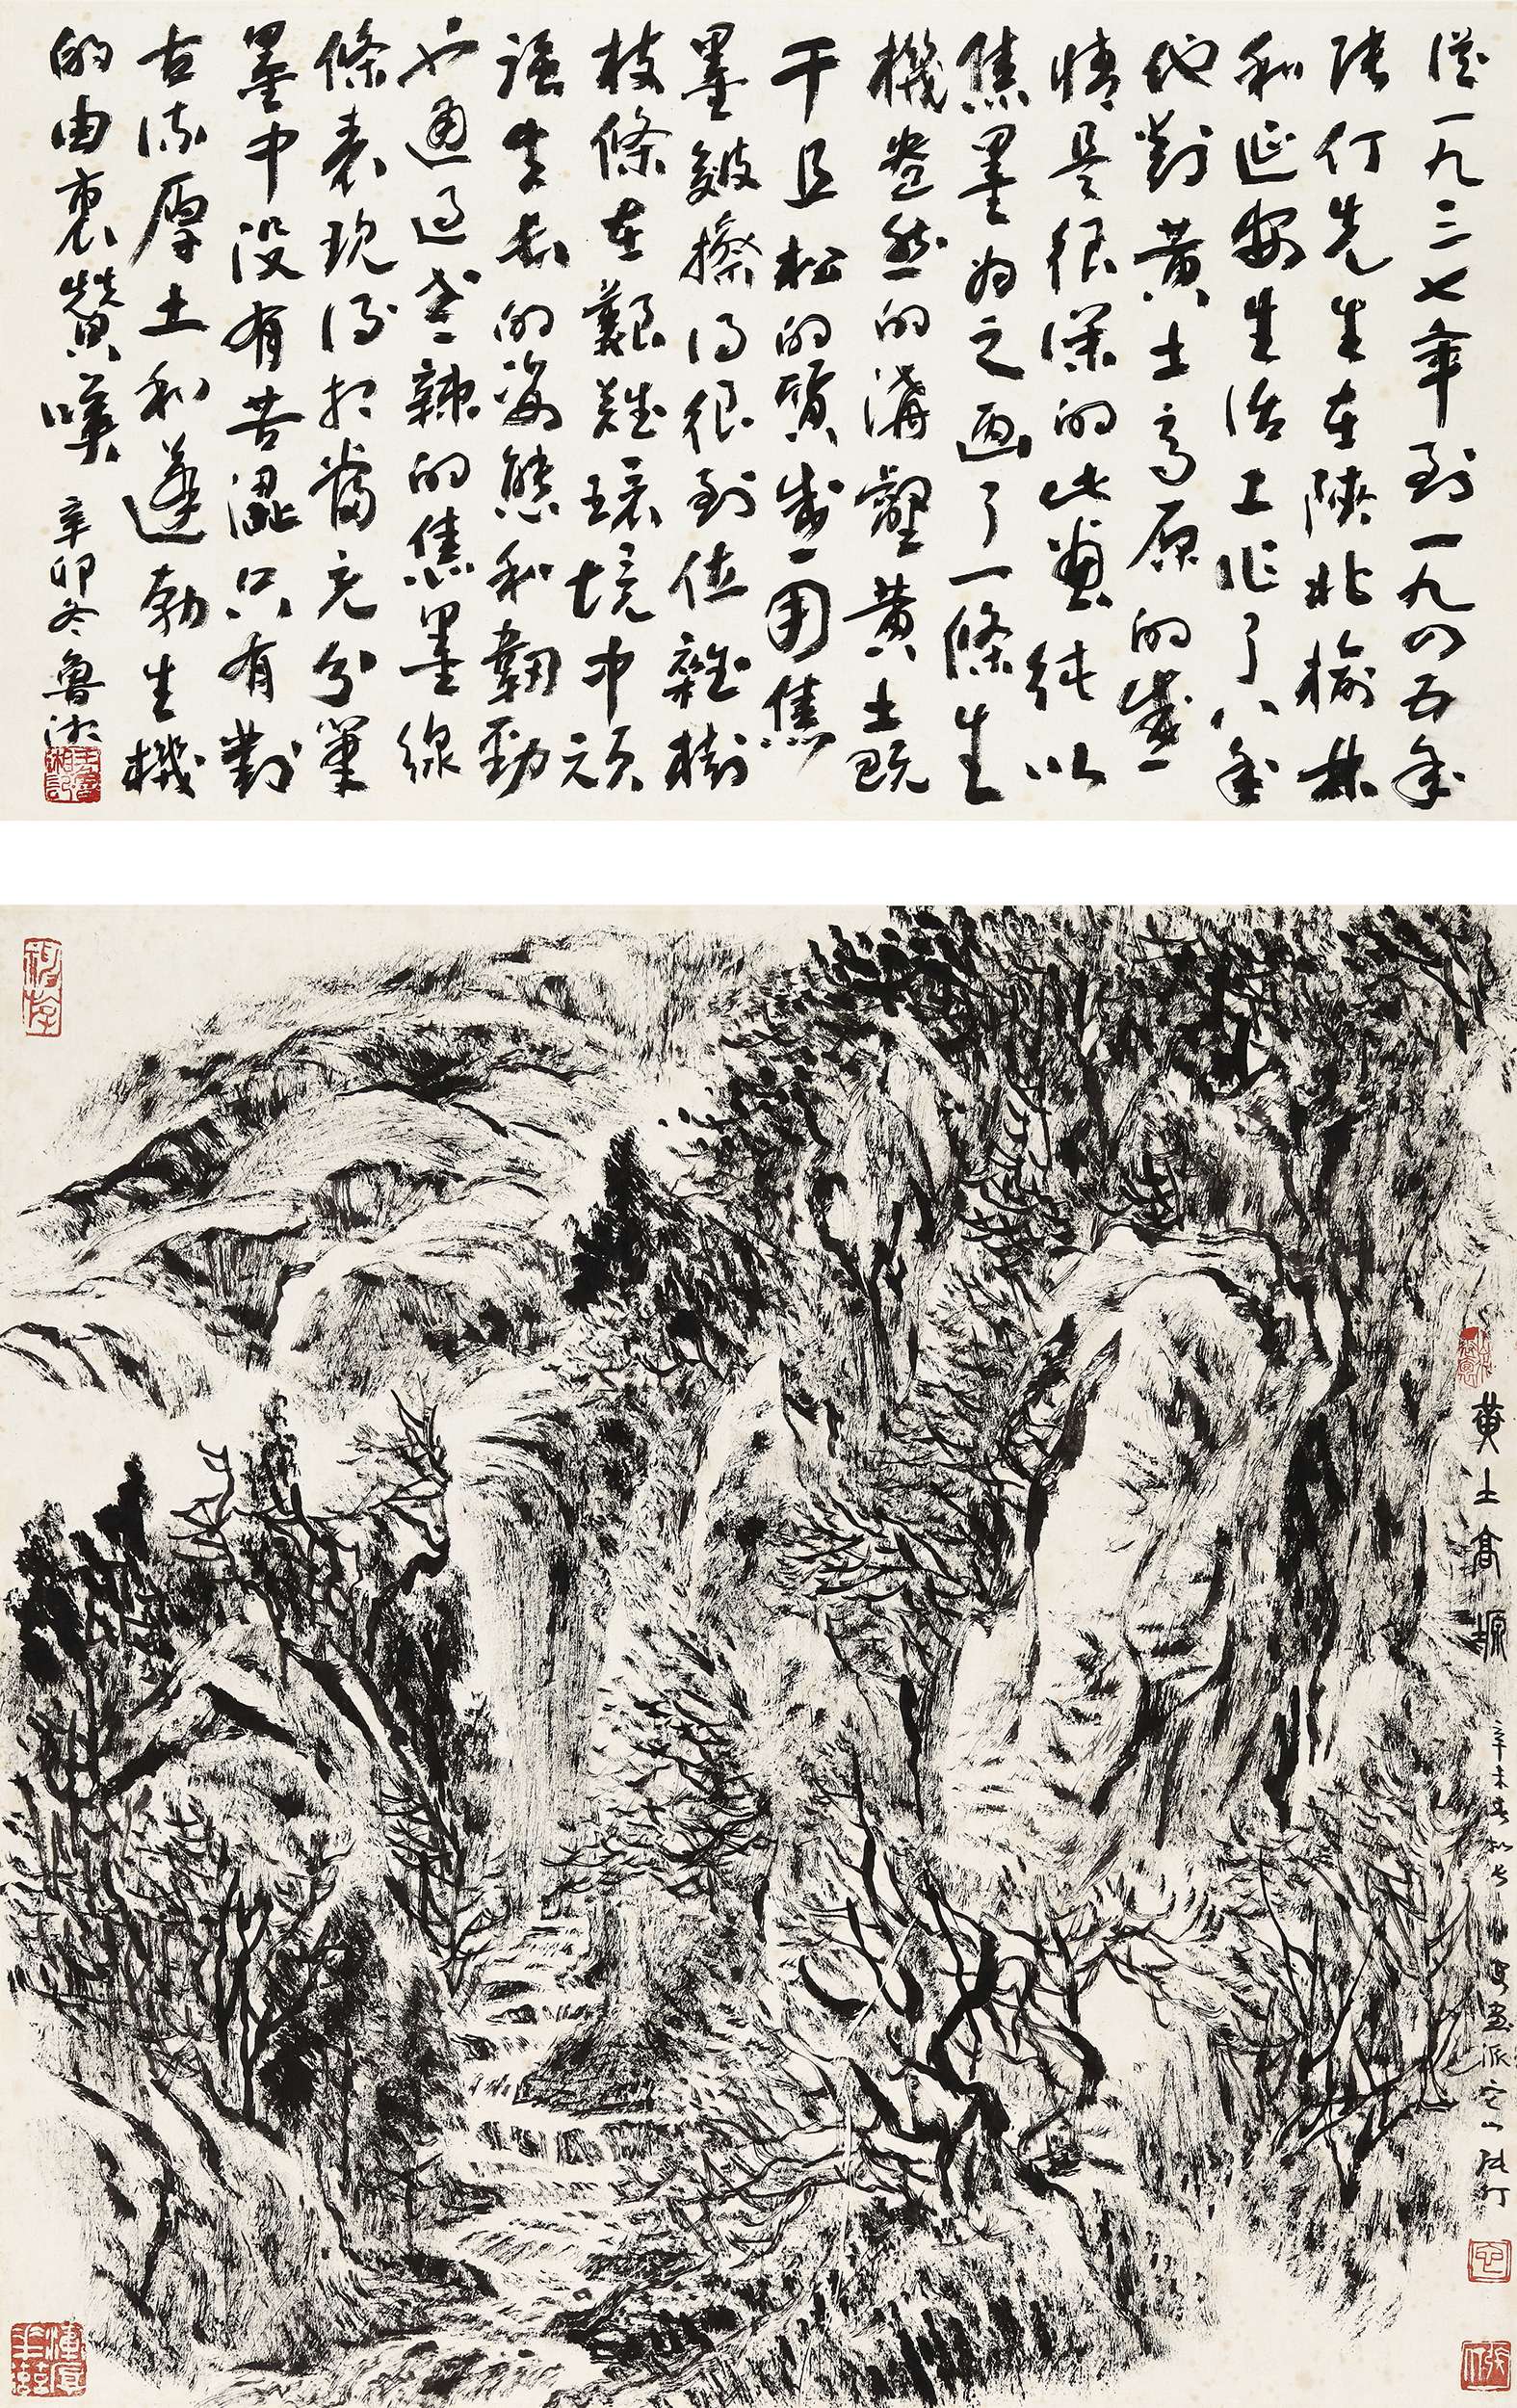 從一九三七年到一九四五年
張仃先生在陝北榆林
和延安生活工作了八年
他對黃土高原的感
情是很深的此畫純以
焦墨為之画了一條生
機盎然的溝壑黃土既
干且松的質感用焦
墨皴擦得很到位雜樹
枝條在艱難環境中頑
強生長的姿態和韌勁
也通過老辣的焦墨線
條表現得相當充分筆
墨中没有苦澀只有對
古厚土和蓬勃生機
的由衷贊嘆 辛卯冬魯湘
黃土高塬
辛未春 畫派它山張仃
張仃